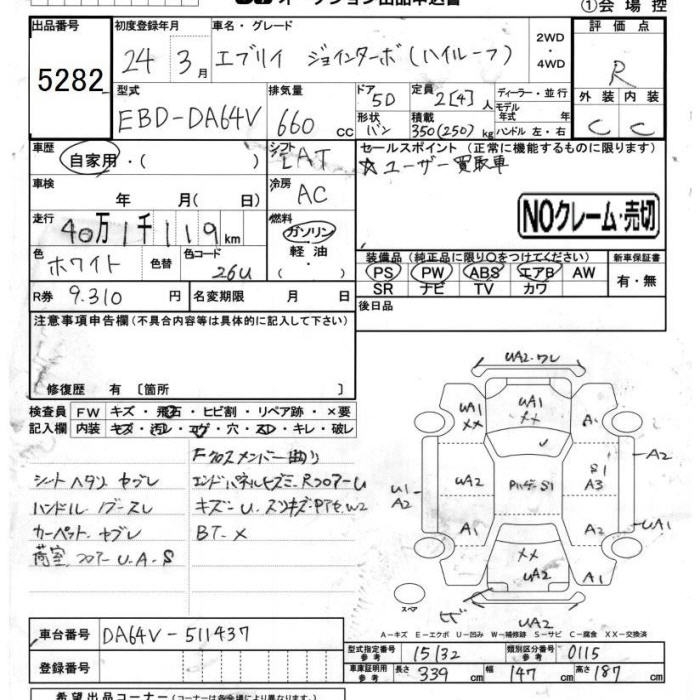 ①会場控
出品番号
5282
初度登録年月
24 3月
車名・グレード
エブリイ ジョインターボ(ハイルーフ)
2WD
・
4WD
評価点
R
型式
EBD-DA64V
排気量
660 cc
ドア
5D
形状
バン
定員
2[4]人
積載
350(250)kg
ディーラー・並行
モデル
年式 年
ハンドル 左・右
外装 内装
C C
車歴
自家用・( )
シフト
車検
年 月( 日)
冷房
AC
走行
40万1千119km
燃料
ガソリン
軽油
・
色
ホワイト
色替
色コード
26U
R券 9.310 円
名変期限 月 日
セールスポイント (正常に機能するものに限ります)
☆ユーザー買取車
NOクレーム・売切
装備品(純正品に限り○をつけてください)
PS PW ABS エアB AW
SR ナビ TV カワ
新車保証書
有・無
後日品
注意事項申告欄(不具合内容等は具体的に記入して下さい)
修復歴 有 [箇所 ]
検査員
記入欄
FW キズ・飛石・ヒビ割・リペア跡・×要
内装 キズ・汚レ・コゲ・穴・スレ・キレ・破レ
Fクロスメンバー曲り
シートヘタリ ヤブレ
ハンドル
カーペット ヤブレ
荷室 フロアー U.A.S
BT-X
UA2・ワレ
UA1
XX
UA1
XX
A1
A2
U1
A2
UA2
S1
A3
A2
UA1
XX
UA2
A1
UA2
スペア
A-キズ E-エクボ U-凹み W-補修跡 S-サビ C-腐食 XX-交換済
車台番号 DA64V-511437
登録番号
型式指定番号
参考
15132
類別区分番号
参考
0115
車庫証明用
参考
長さ 339 cm
幅 147 cm
高さ 187 cm
希望出品コーナー